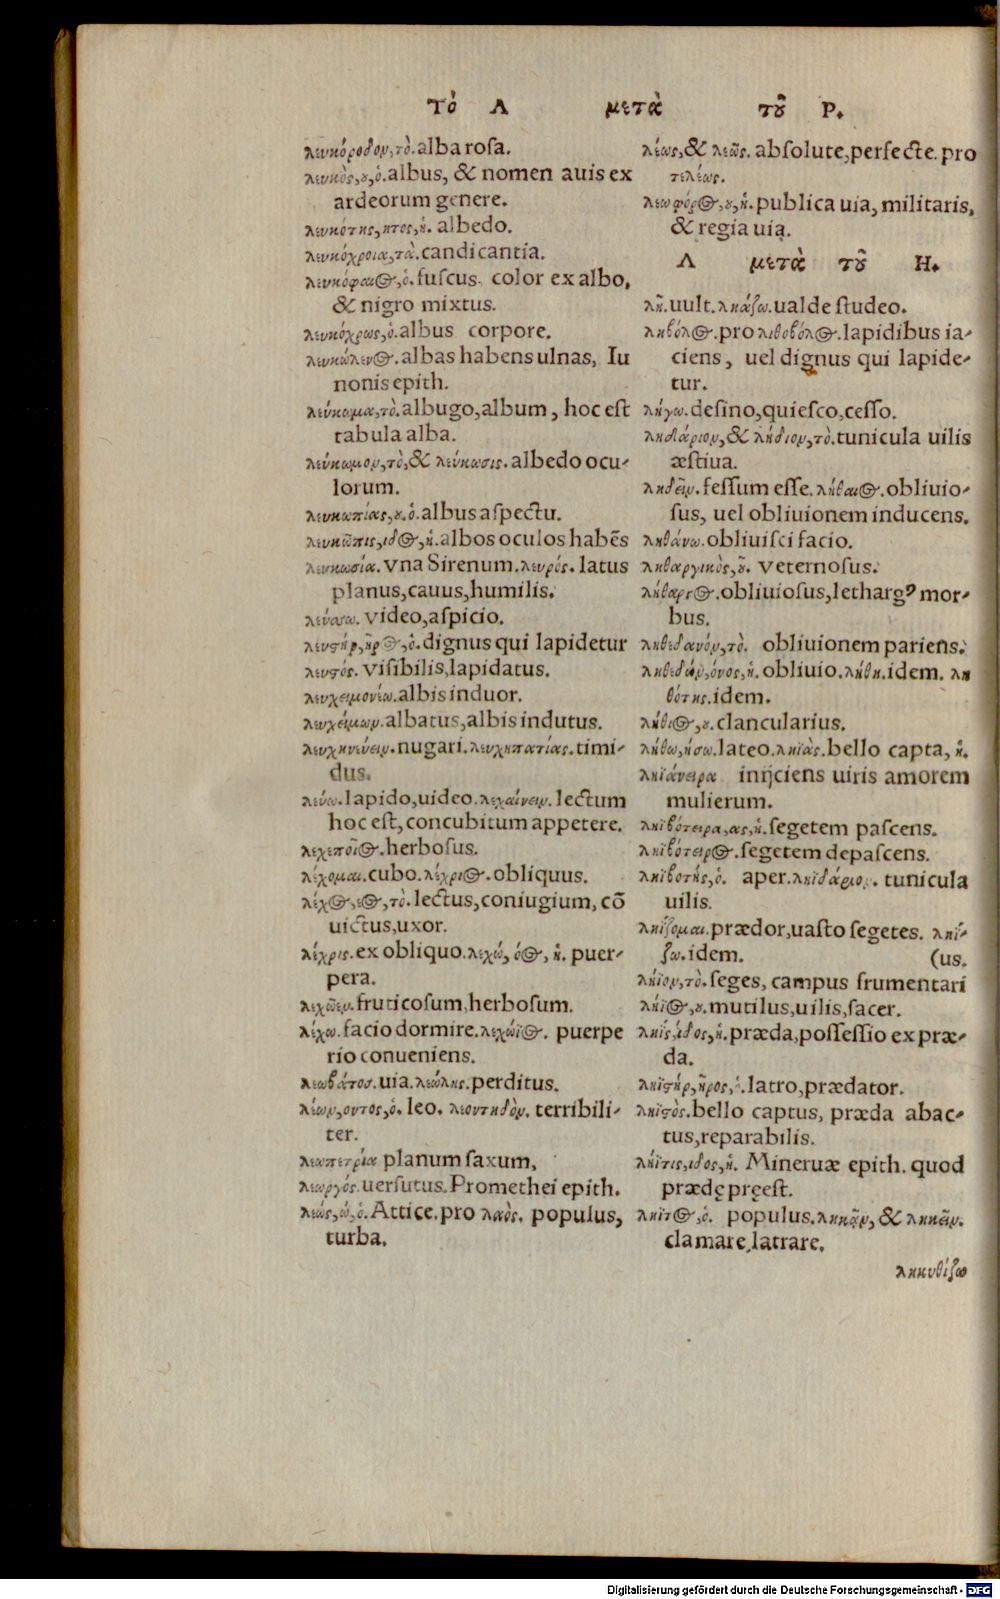 Τὸ Λ μετὰ τοῦ Ρ.
λευκόροδον, τὸ. alba rosa.
λευκὸς, ου, ὁ. albus, & nomen auis ex
ardeorum genere.
λευκότης, ητος, ἡ. albedo.
λευκόχροια, τὰ. candicantia.
λευκόφαιος, ὁ. fuscus. color ex albo,
& nigro mixtus.
λευκόχρως, ὁ. albus corpore.
λευκώλενος. albas habens ulnas, Iu
nonis epith.
λεύκωμα, τὸ. albugo, album, hoc est
tabula alba.
λεύκωμον, τὸ, & λεύκωσις. albedo ocu-
lorum.
λευκωπίας, ου. ὁ. albus aspectu.
λευκῶπις, ιδος, ἡ. albos oculos habēs
λευκωσία. vna Sirenum. λευρός. latus
planus, cauus, humilis.
λεύσσω. video, aspicio.
λευστήρ, ῆρος, ὁ. dignus qui lapidetur
λευστός. visibilis, lapidatus.
λευχειμονέω. albis induor.
λευχείμων. albatus, albis indutus.
nugari. λευχηπατίας. timi-
dus.
λεύω. lapido, uideo. λεχαίνειν. lectum
hoc est, concubitum appetere.
λεχεποῖος. herbosus.
λέχομαι. cubo. λέχριος. obliquus.
λέχος, εος, τὸ. lectus, coniugium, cō
uictus, uxor.
λέχρις. ex obliquo. λεχώ, όος, ἡ. puer-
pera.
λεχῶεν. fruticosum, herbosum.
λέχω. facio dormire. λεχώϊος. puerpe
rio conueniens.
λεωβάτος. uia. λεώλης. perditus.
λέων, οντος, ὁ. leo. λεοντηδὸν. terribili-
ter.
λεωπετρία planum saxum,
λεωργός. uersutus. Promethei epith.
λεώς, ώ, ὁ. Attice. pro λαὸς. populus,
turba.
λέως, & λεῶς. absolute, perfecte. pro
τελέως.
λεωφόρος, ου, ἡ. publica uia, militaris,
& regia uia.
Λ μετὰ τοῦ Η.
λῆ. uult. ληάζω. ualde studeo.
ληβόλος. pro λιθοβόλος. lapidibus ia-
ciens, uel dignus qui lapide-
tur.
λήγω. desino, quiesco, cesso.
ληδάριον, & λήδιον, τὸ. tunicula uilis
æstiua.
ληδεῖν. fessum esse. λήθαιος. obliuio-
sus, uel obliuionem inducens.
ληθάνω. obliuisci facio.
ληθαργικὸς, οῦ. veternosus.
λήθαργος. obliuiosus, letharg⁹ mor-
bus.
ληθεδανόν, τὸ. obliuionem pariens.
ληθεδών, όνος, ἡ. obliuio. λήθη. idem. λη
θότης. idem.
λήθιος, ου. clancularius.
λήθω, ήσω. lateo. ληϊὰς. bello capta, ἡ.
ληϊάνειρα inijciens uiris amorem
mulierum.
ληϊβότειρα, ας, ἡ. segetem pascens.
ληϊβότειρος. segetem depascens.
ληϊβοτής, ὁ. aper. ληϊδάριον. tunicula
uilis.
ληΐζομαι. prædor, uasto segetes. ληΐ-
ζω. idem. (us.
λήϊον, τὸ. seges, campus frumentari
λήϊος, ου. mutilus, uilis, sacer.
ληΐς, ΐδος, ἡ. præda, possessio ex præ-
da.
ληϊστήρ, ῆρος, ὁ. latro, prædator.
ληϊστὸς. bello captus, præda abac-
tus, reparabilis.
λήϊτις, ιδος, ἡ. Mineruæ epith. quod
prædę pręest.
λήϊτος, ὁ. populus. ληκᾷν, & ληκεῖν.
clamare, latrare.
ληκυθίζω
Digitalisierung gefördert durch die Deutsche Forschungsgemeinschaft - DFG